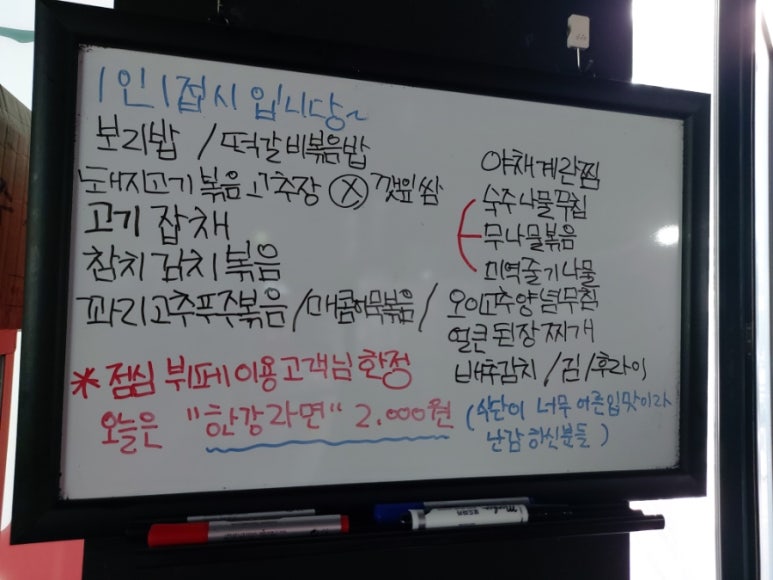 1인 1접시 입니당~
보리밥 / 떡갈비볶음밥
돼지고기볶음 고추장 ⓧ 깻잎쌈
고기 잡채
참치김치볶음
꽈리고추푸주볶음 / 매콤어묵볶음 /
야채계란찜
숙주나물무침
무나물볶음
미역줄기나물
오이고추양념무침
얼큰된장찌개
배추김치 / 김 / 후라이
* 점심 뷔페 이용고객님 한정
오늘은 "한강라면" 2.000원
(식단이 너무 어른입맛이라
난감하신분들)